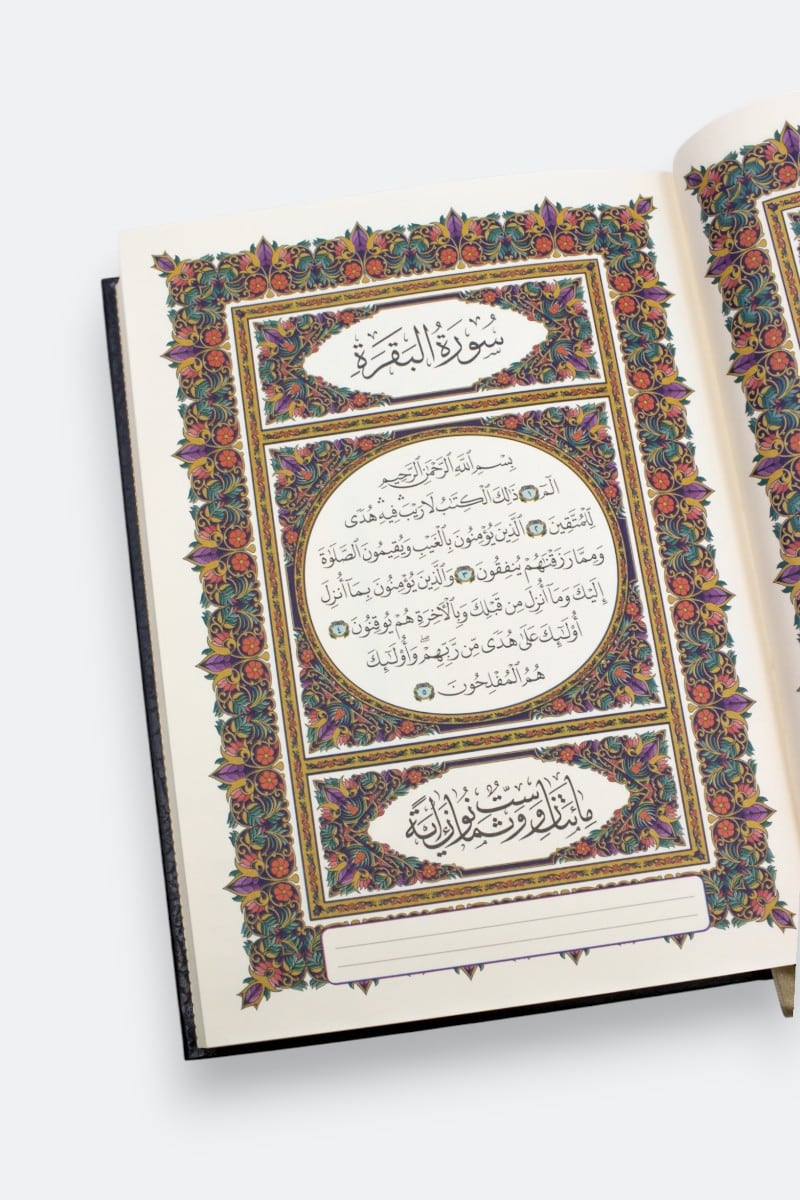 سُورَةُ البَقَرَةِ
بِسْمِ ٱللَّهِ ٱلرَّحْمَٰنِ ٱلرَّحِيمِ
الٓمٓ ١ ذَٰلِكَ ٱلْكِتَٰبُ لَا رَيْبَۛ فِيهِۛ هُدًى
لِّلْمُتَّقِينَ ٢ ٱلَّذِينَ يُؤْمِنُونَ بِٱلْغَيْبِ وَيُقِيمُونَ ٱلصَّلَوٰةَ
وَمِمَّا رَزَقْنَٰهُمْ يُنفِقُونَ ٣ وَٱلَّذِينَ يُؤْمِنُونَ بِمَآ أُنزِلَ
إِلَيْكَ وَمَآ أُنزِلَ مِن قَبْلِكَ وَبِٱلْأَخِرَةِ هُمْ يُوقِنُونَ ٤
أُوْلَٰٓئِكَ عَلَىٰ هُدًى مِّن رَّبِّهِمْۖ وَأُوْلَٰٓئِكَ
هُمُ ٱلْمُفْلِحُونَ ٥
مِائَتَانِ وَسِتٌّ وَثَمَانُونَ آيَةً